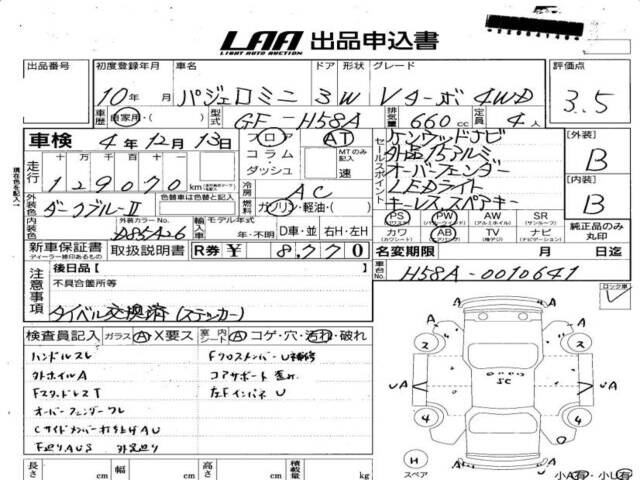 LAA 出品申込書
LIGHT AUTO AUCTION
出品番号 初度登録年月 車名 ドア 形状 グレード 評価点
10年 月 パジェロミニ 3 W Vターボ 4WD 3.5
車歴 自家用・( ) 型式 GF-H58A 排気量 660 cc 定員 4人
車検 4年12月13日 フロア コラム・ダッシュ AT MTのみ記入 速
走行 十万千百十 129070 km
冷房 AC
セールスポイント
ケンウッドナビ
外品15アルミ
オーバーフェンダー
LEDライト
キーレス,スペアキー
【外装】 B
【内装】 B
外装色 ダークブルーII 色替車は色替と記入 燃料 ガソリン・軽油・( )
内装色 外装カラーNo. 輸入車 モデル年式 年・不明 D車・並 右H・左H
PS PW AW SR
(パワステ) (パワーウィンド) (アルミホイル) (サンルーフ)
カワ AB TV ナビ
(カワシート) (エアバッグ) (テレビ) (ナビゲーション)
純正品のみ丸印
新車保証書 取扱説明書 R券 ¥ 8,770 名変期限 月 日迄
ディーラー様印あるもの
車台No. H58A-0010641
注意事項 後日品【 】
不具合箇所等
タイベル交換済(ステッカー)
ロック車
検査員記入 ガラス A・X要ス 室内 シート A コゲ・穴・汚れ・破れ
ハンドルスレ
外ホイルA コアサポート
左Fインパネ U
オーバーフェンダーワレ
A
2 2
UA SC UA
4 4
A
H
スペア 小A有・小U有
長さ cm 幅 cm 高さ cm 積載量 kg
現在色を記入